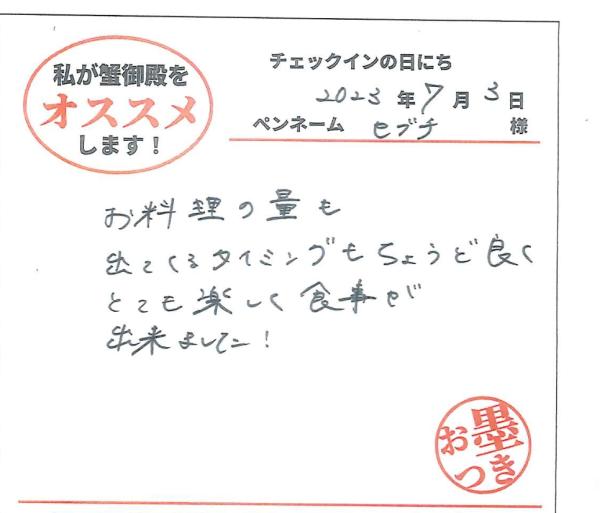 私が蟹御殿を
オススメ
します！
チェックインの日にち
2023年7月3日
ペンネーム セブチ 様
お料理の量も
出てくるタイミングもちょうど良く
とても楽しく食事が
出来ました！
お墨つき